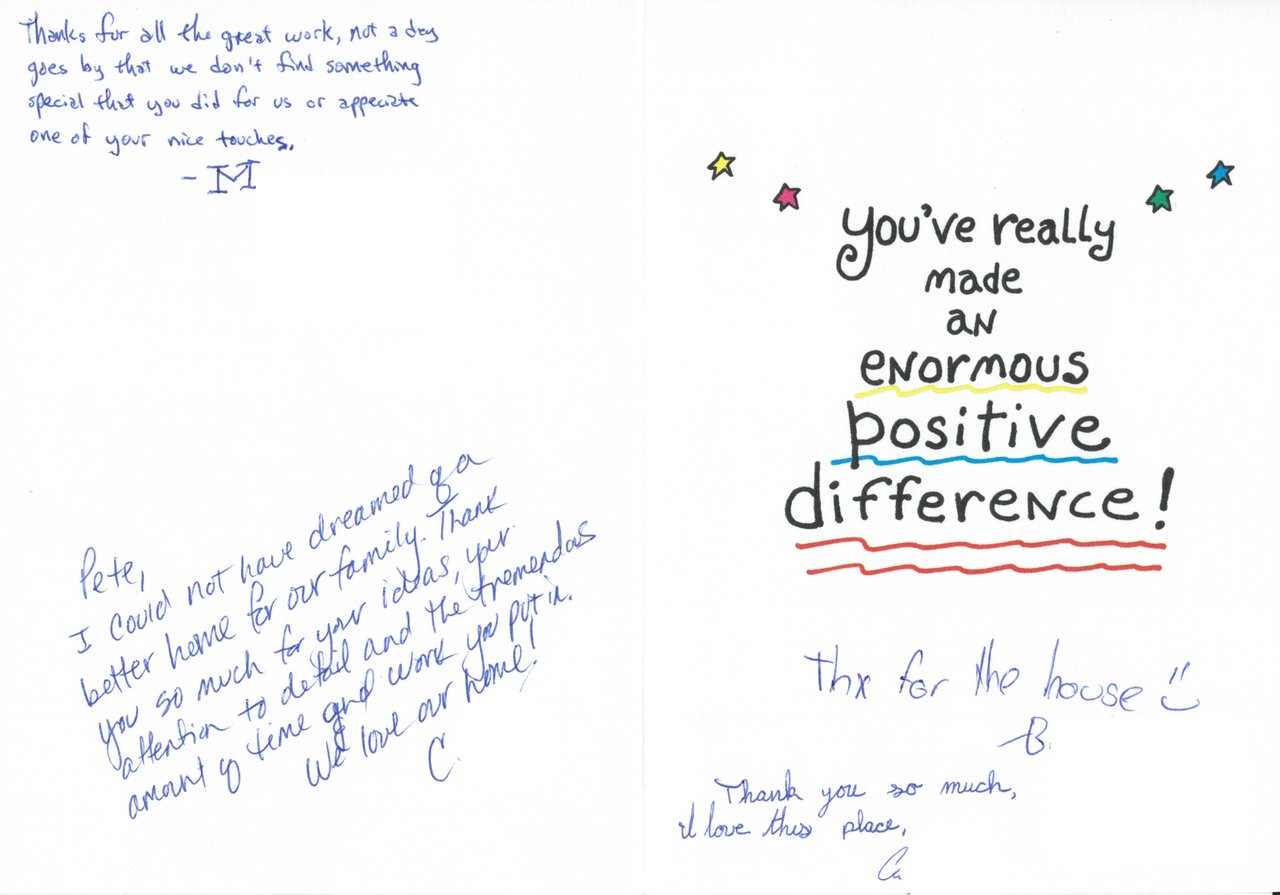 Thanks for all the great work, not a day
goes by that we don't find something
special that you did for us or appeciate
one of your nice touches.
- M
Pete,
I could not have dreamed of a
better home for our family. Thank
you so much for your ideas, your
attention to detail and the tremendous
amount of time and work you put in.
We love our home!
C.
you've really
made
aN
eNormous
positive
differeNce!
Thx for the house :)
-B.
Thank you so much,
i love this place,
Ca